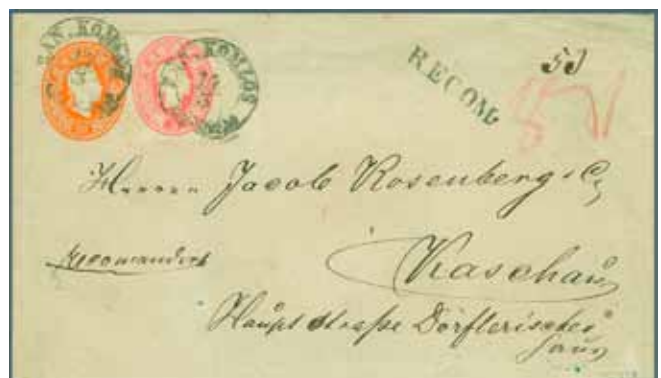 KOMLOS
RECOM
53
Herren Jacob Rosenberg & Co
recomandirt
Kaschau
Hauptstraße Dörflerisches
Haus